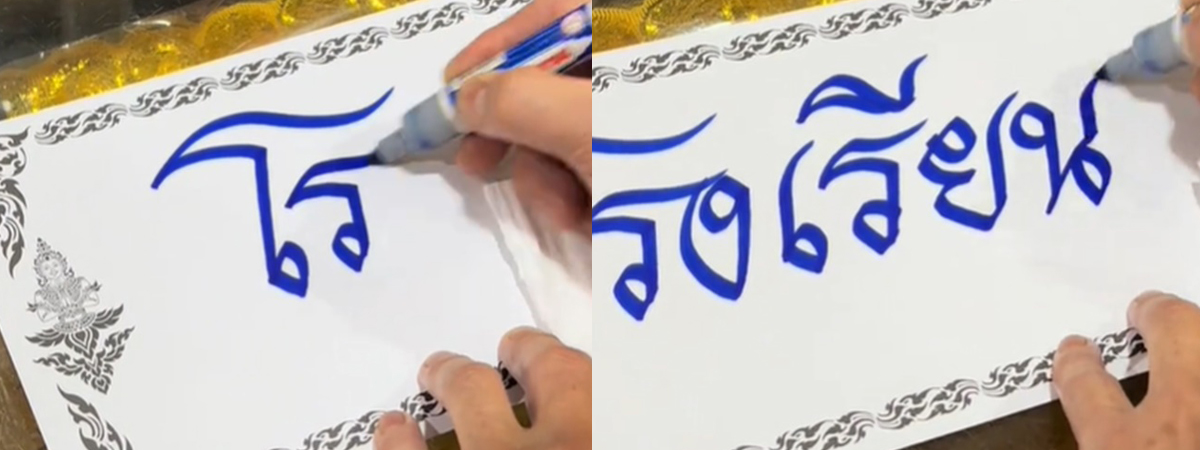 โร
รงเรียน